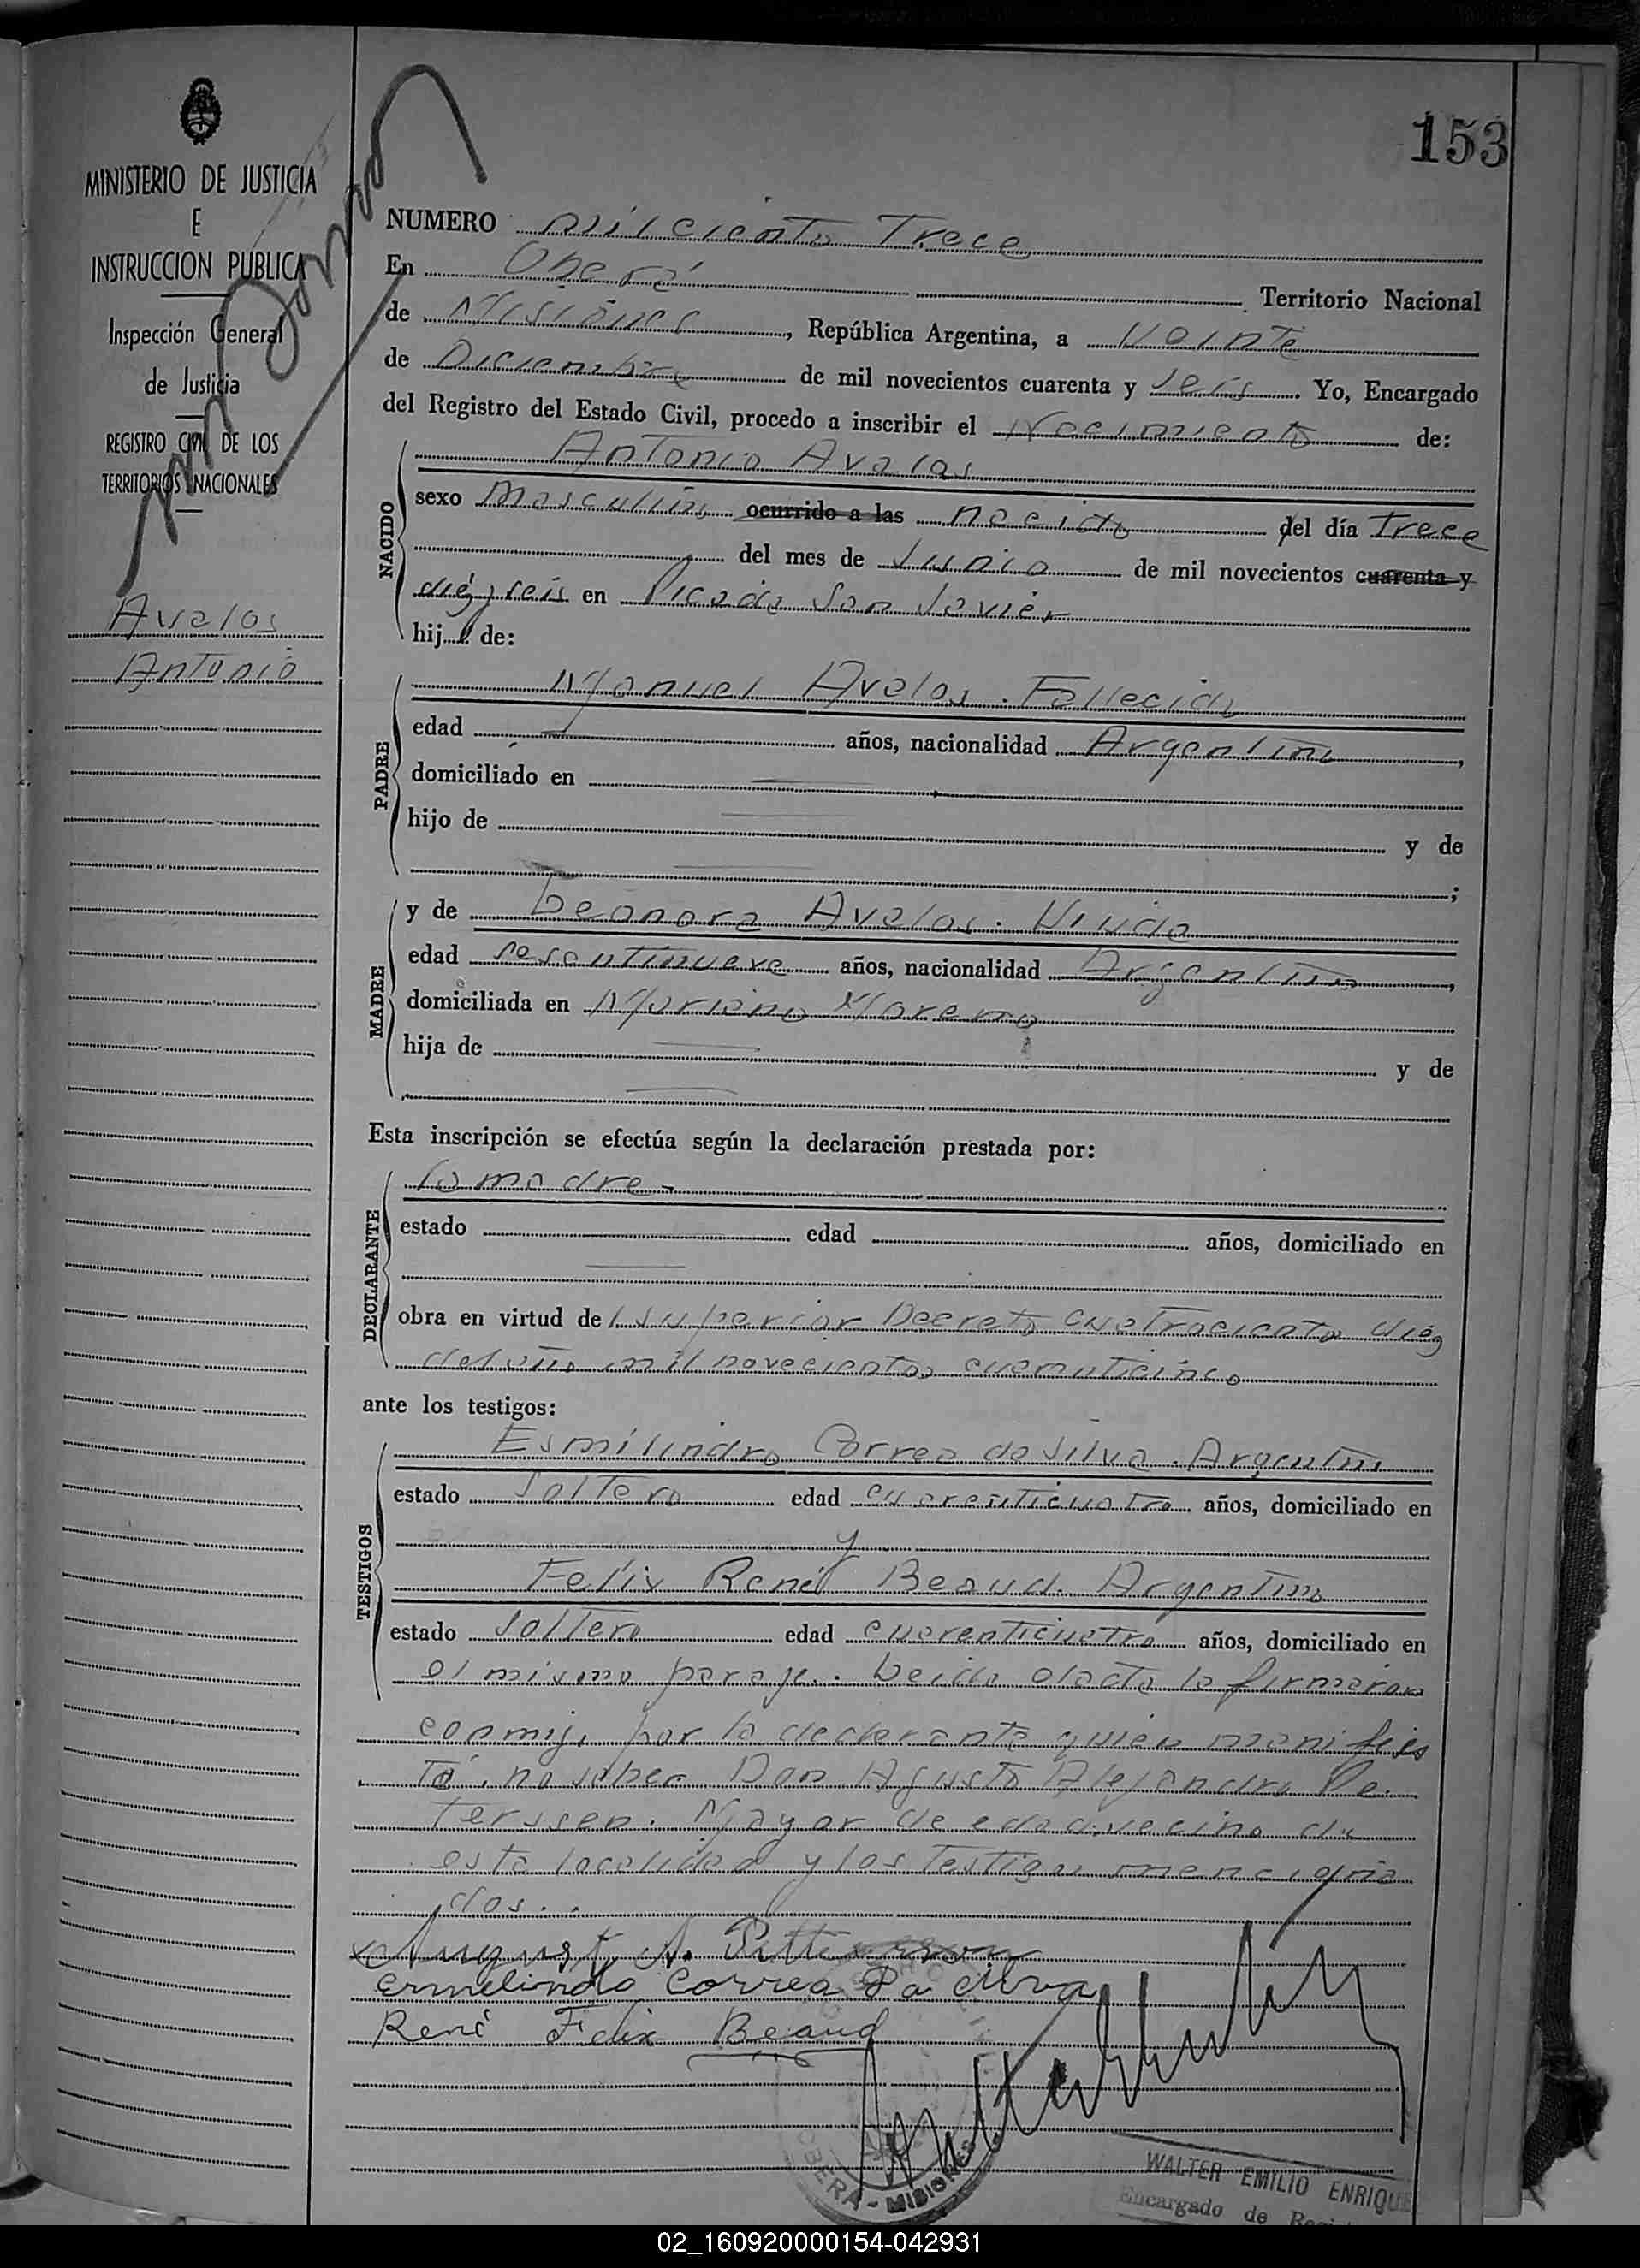 153
MINISTERIO DE JUSTICIA
E
INSTRUCCION PUBLICA
Inspección General
de Justicia
REGISTRO CIVIL DE LOS
TERRITORIOS NACIONALES
Avalos
Antonio
NUMERO mil ciento Trece
En Oberá Territorio Nacional
de Misiones, República Argentina, a Veinte
de Diciembre de mil novecientos cuarenta y seis. Yo, Encargado
del Registro del Estado Civil, procedo a inscribir el Nacimiento de:
NACIDO
Antonio Avalos
sexo Masculino ocurrido a las nacido del día Trece
del mes de Junio de mil novecientos cuarenta y
diezyseis en Picada San Javier
hijo de:
PADRE
Manuel Avalos. Fallecido
edad años, nacionalidad Argentino,
domiciliado en
hijo de y de
;
MADRE
y de Leonora Avalos. Viuda
edad sesentinueve años, nacionalidad Argentina,
domiciliada en Mariano Moreno
hija de y de
Esta inscripción se efectúa según la declaración prestada por:
DECLARANTE
la madre
estado edad años, domiciliado en
obra en virtud del superior Decreto cuatrociento diez
del año mil novecientos cuarenticinco
ante los testigos:
TESTIGOS
Esmilindro Correa da Silva. Argentino
estado Soltero edad cuarenticuatro años, domiciliado en
y
Felix René Beaud. Argentino
estado Soltero edad cuarenticuatro años, domiciliado en
el mismo paraje. Leida el acta la firmaron
conmigo, por la declarante quien manifies
tó no saber Don Agusto Alejandro Pe
terssen. Mayor de edad, vecino de
esta localidad y los Testigos menciona
dos.
August A.
Ermelindo Correa Da Silva
René Felix Beaud
OBERA - MISIONES
WALTER EMILIO ENRIQUE
Encargado de
02_160920000154-042931